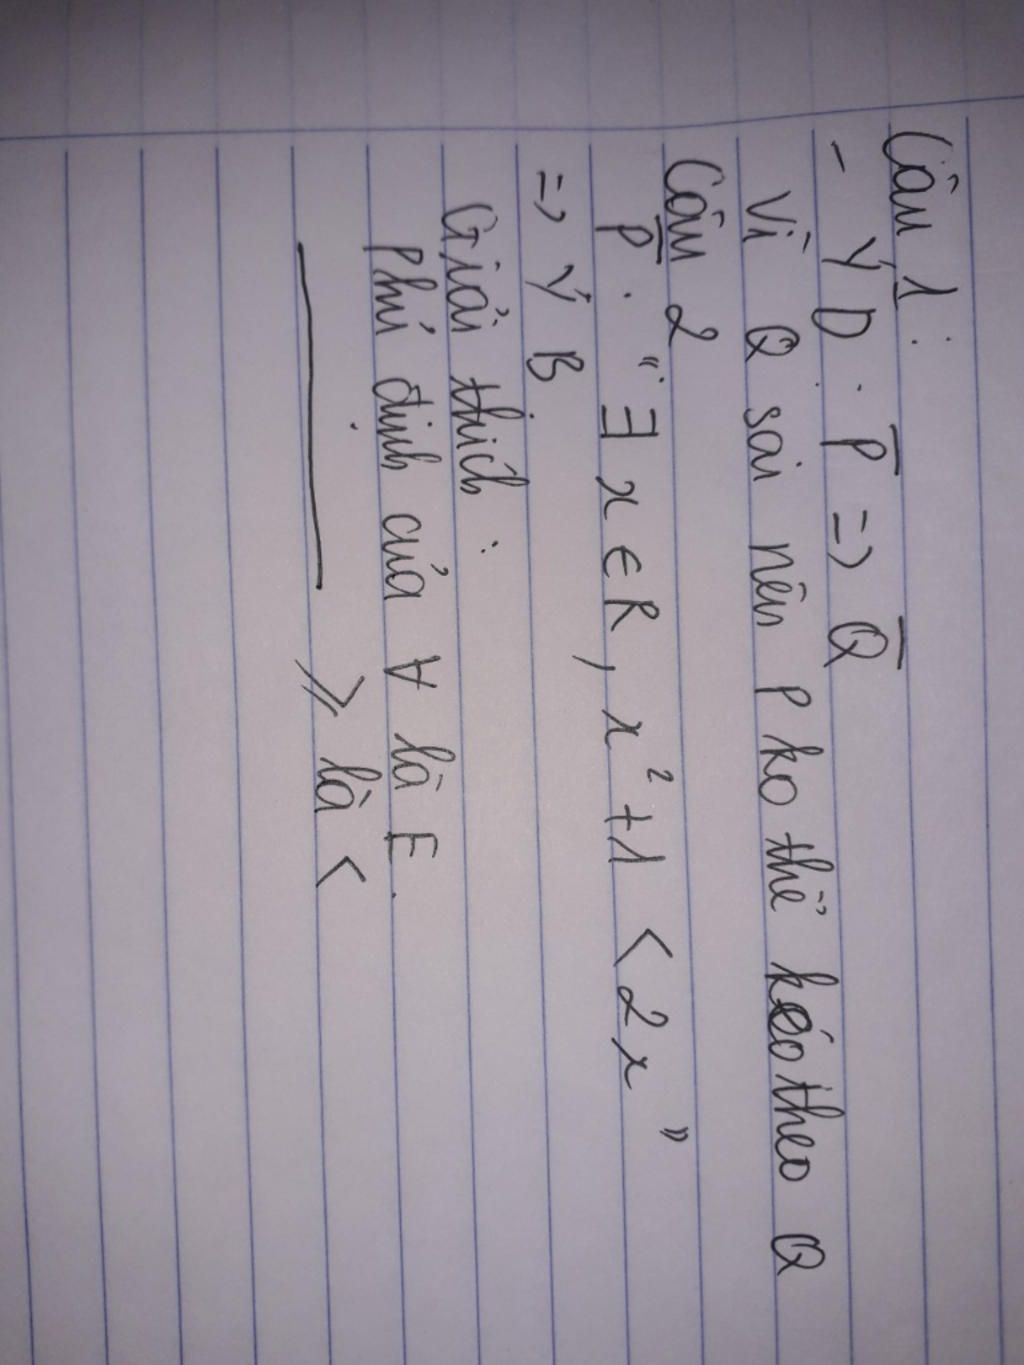 Câu 1 :
- Ý D . P̅ => Q̅
Vì Q sai nên P ko thể kéo theo Q
Câu 2
P̅ . " ∃ x ∈ R , x² +1 < 2x "
=> Ý B .
Giải thích :
Phủ định của ∀ là E .
⩾ là <